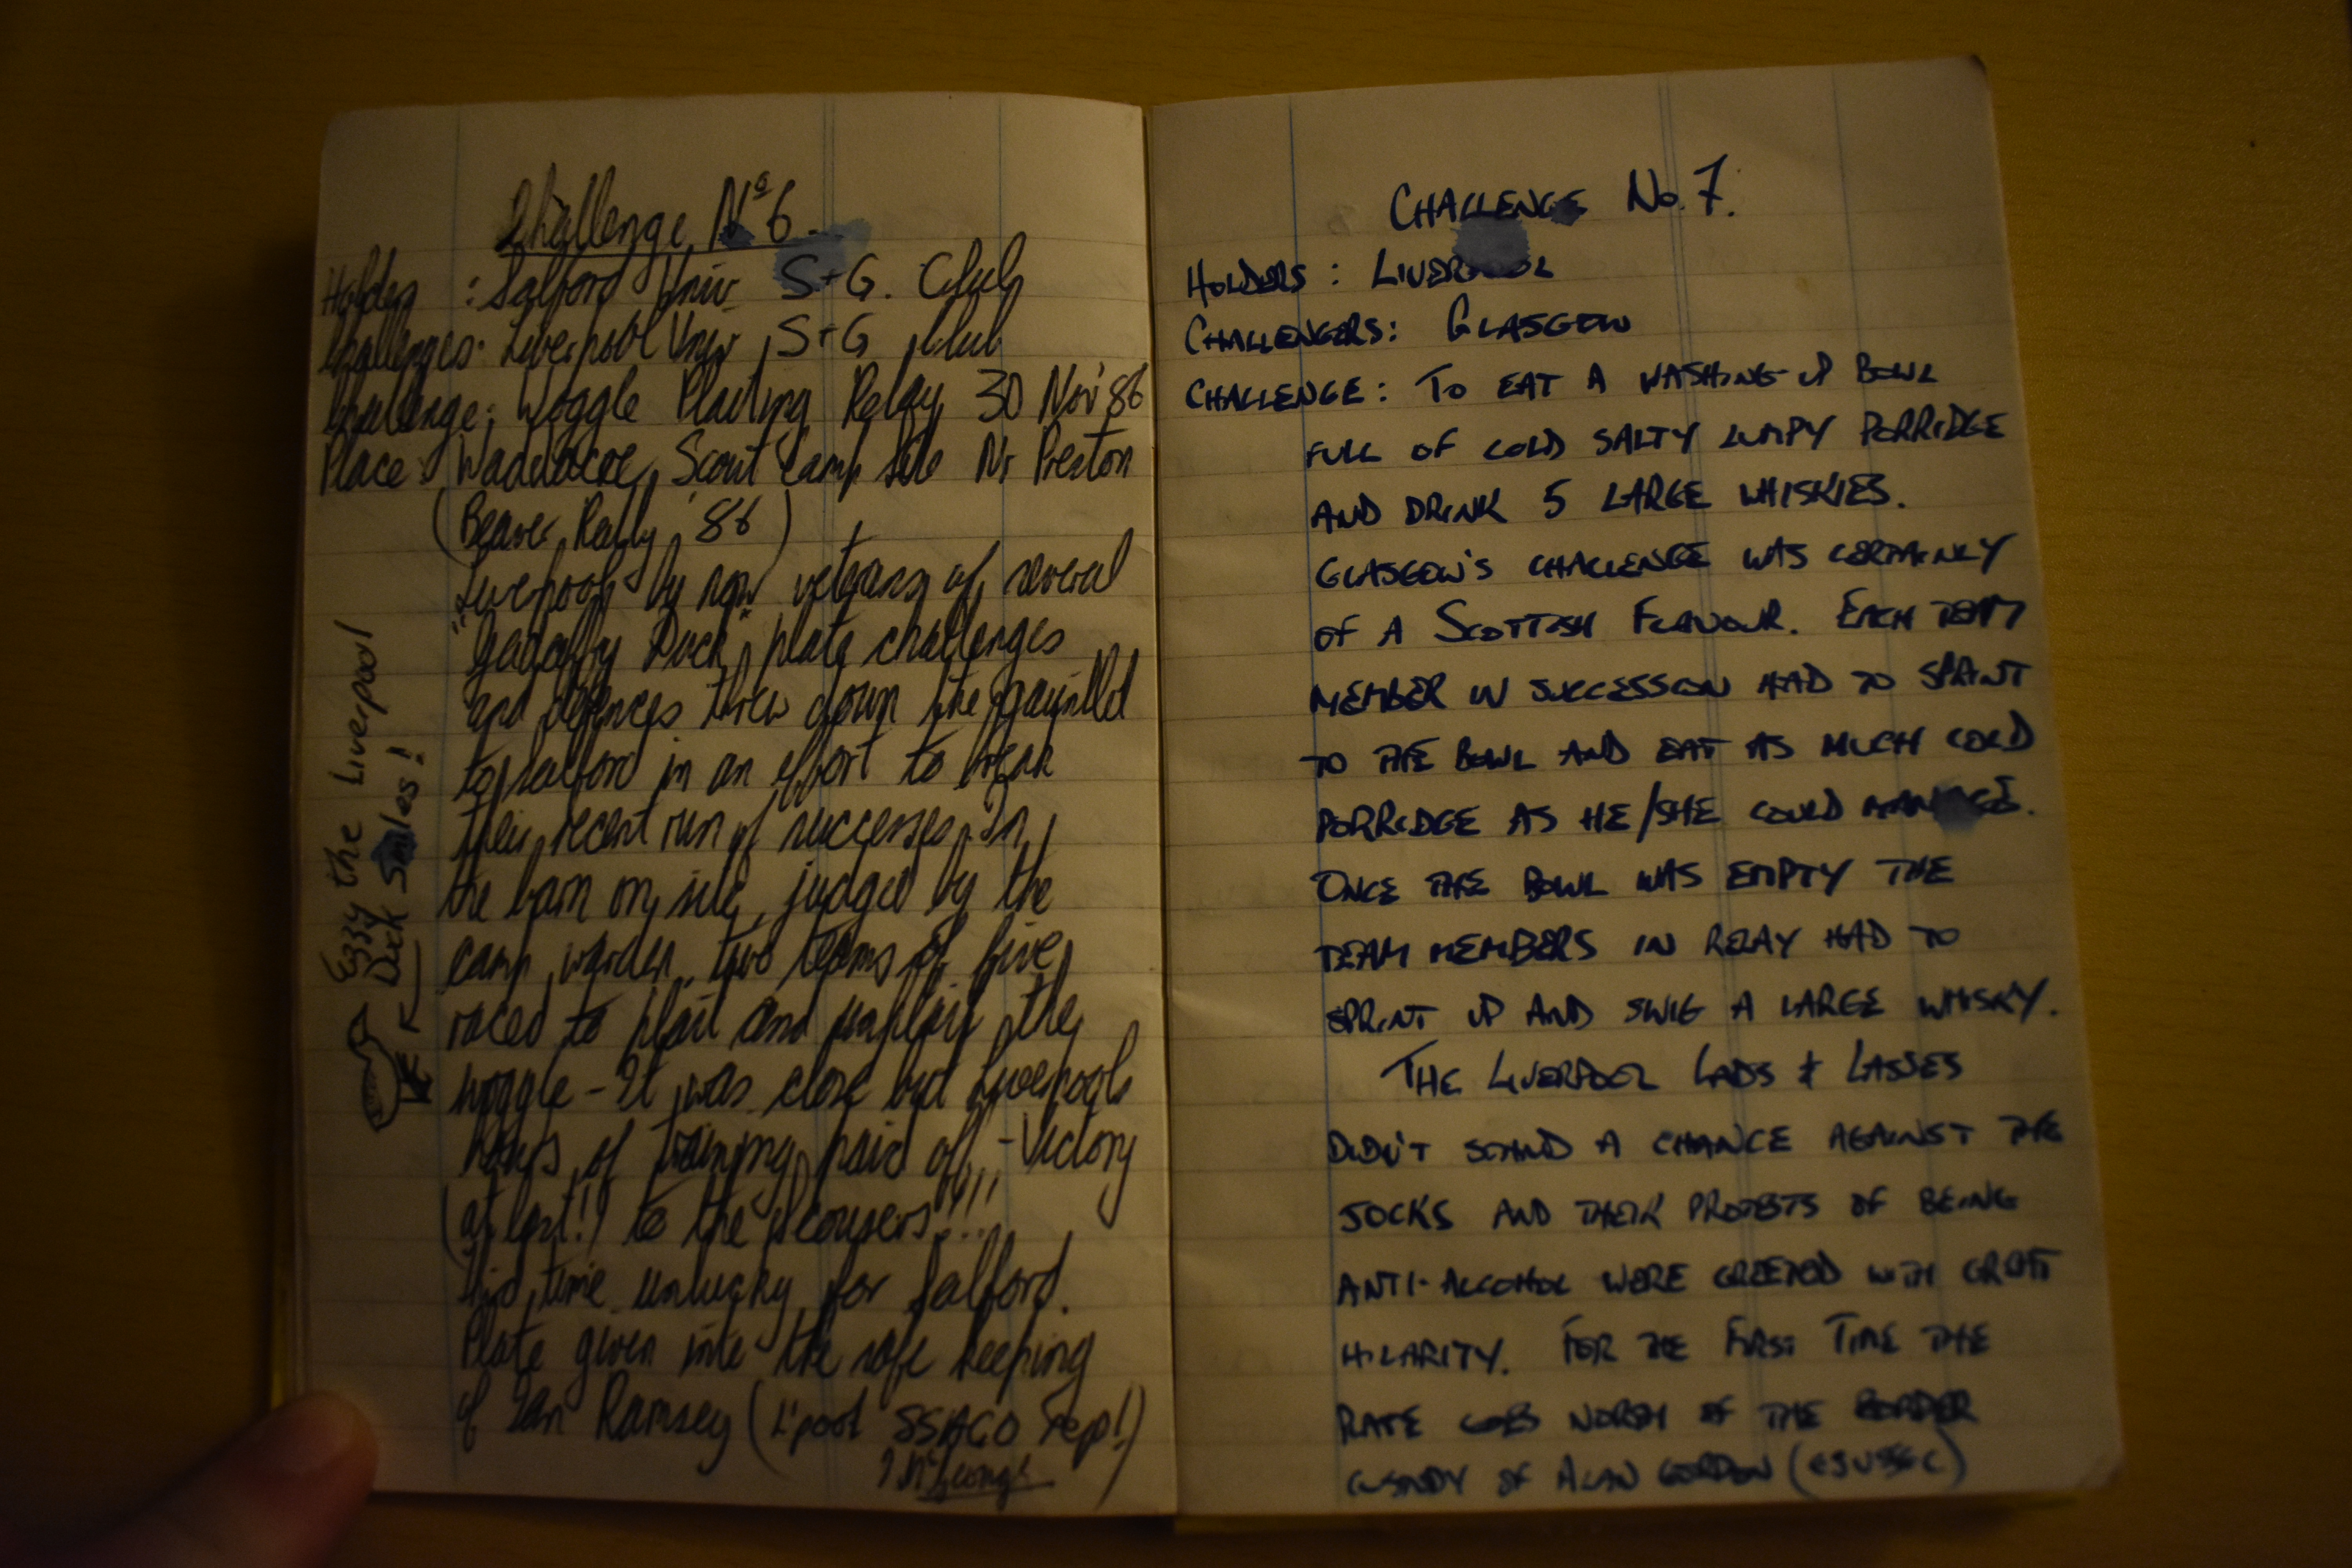 Challenge No 6
Holders : Salford Univ S+G. Club
Challenges: Liverpool Univ S+G Club
Challenge: Woggle Plaiting Relay 30 Nov '86
Place: Waddecar Scout Camp Site Nr Preston
(Beaver Rally '86)
Liverpool by now veterans of several
"Gadaffy Duck" plate challenges
and defences threw down the gauntlet
to Salford in an effort to break
their recent run of successes. In
the barn on site, judged by the
camp warden, two teams of five
raced to plait and unplait the
woggle - It was close but Liverpools
hours of training paid off - Victory
(at last!) to the Scousers!!!...
time unlucky for Salford.
Plate given into the safe keeping
of Ian Ramsey (L'pool SSAGO rep!)
Ezzy the Liverpool
Duck Smiles!
CHALLENGE No. 7.
HOLDERS : LIVERPOOL
CHALLENGERS: GLASGOW
CHALLENGE: TO EAT A WASHING-UP BOWL
FULL OF COLD SALTY LUMPY PORRIDGE
AND DRINK 5 LARGE WHISKIES.
GLASGOW'S CHALLENGE WAS CERTAINLY
OF A SCOTTISH FLAVOUR. EACH TEAM
MEMBER IN SUCCESSION HAD TO SPRINT
TO THE BOWL AND EAT AS MUCH COLD
PORRIDGE AS HE/SHE COULD MANAGE.
ONCE THE BOWL WAS EMPTY THE
TEAM MEMBERS IN RELAY HAD TO
SPRINT UP AND SWIG A LARGE WHISKY.
THE LIVERPOOL LADS & LASSES
DIDN'T STAND A CHANCE AGAINST THE
JOCKS AND THEIR PROTESTS OF BEING
ANTI-ALCOHOL WERE GREETED WITH GREAT
HILARITY. FOR THE FIRST TIME THE
PLATE GOES NORTH OF THE BORDER
CUSTODY OF ALAN GORDON